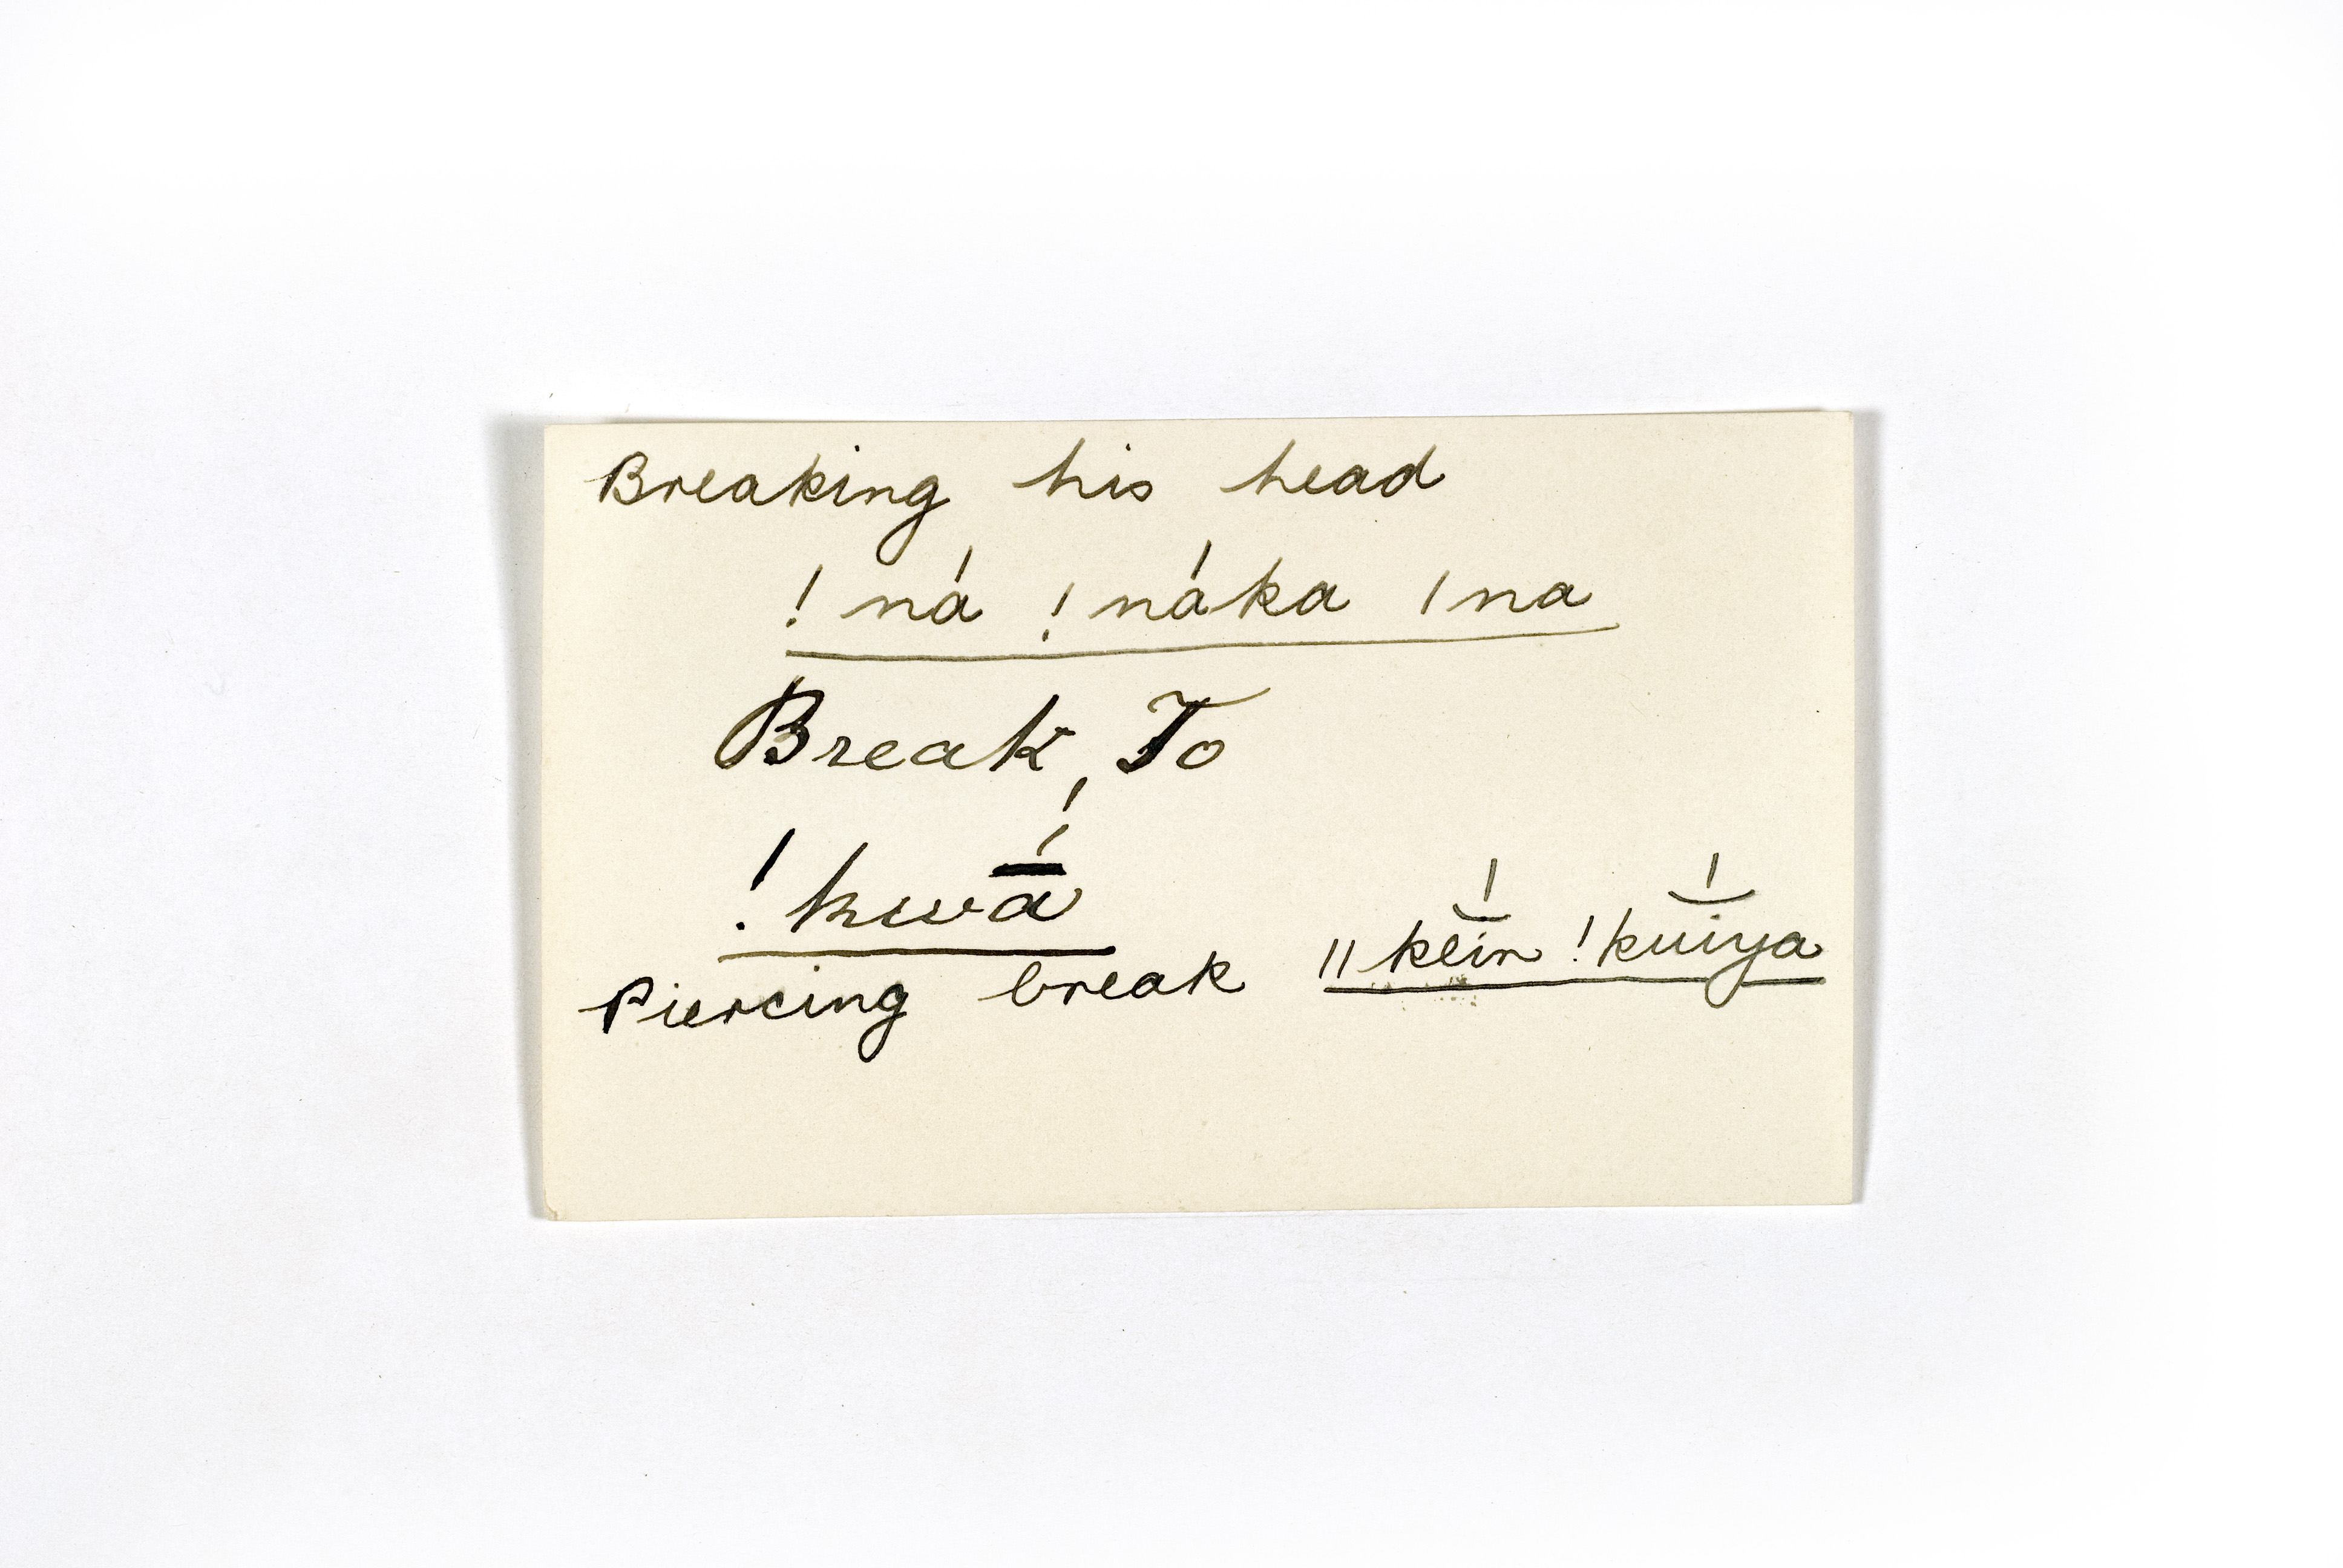 Breaking his head
! ná ! náka | na
Break, To
! kwā́
Piercing break || kĕ́in ! kŭ́iya